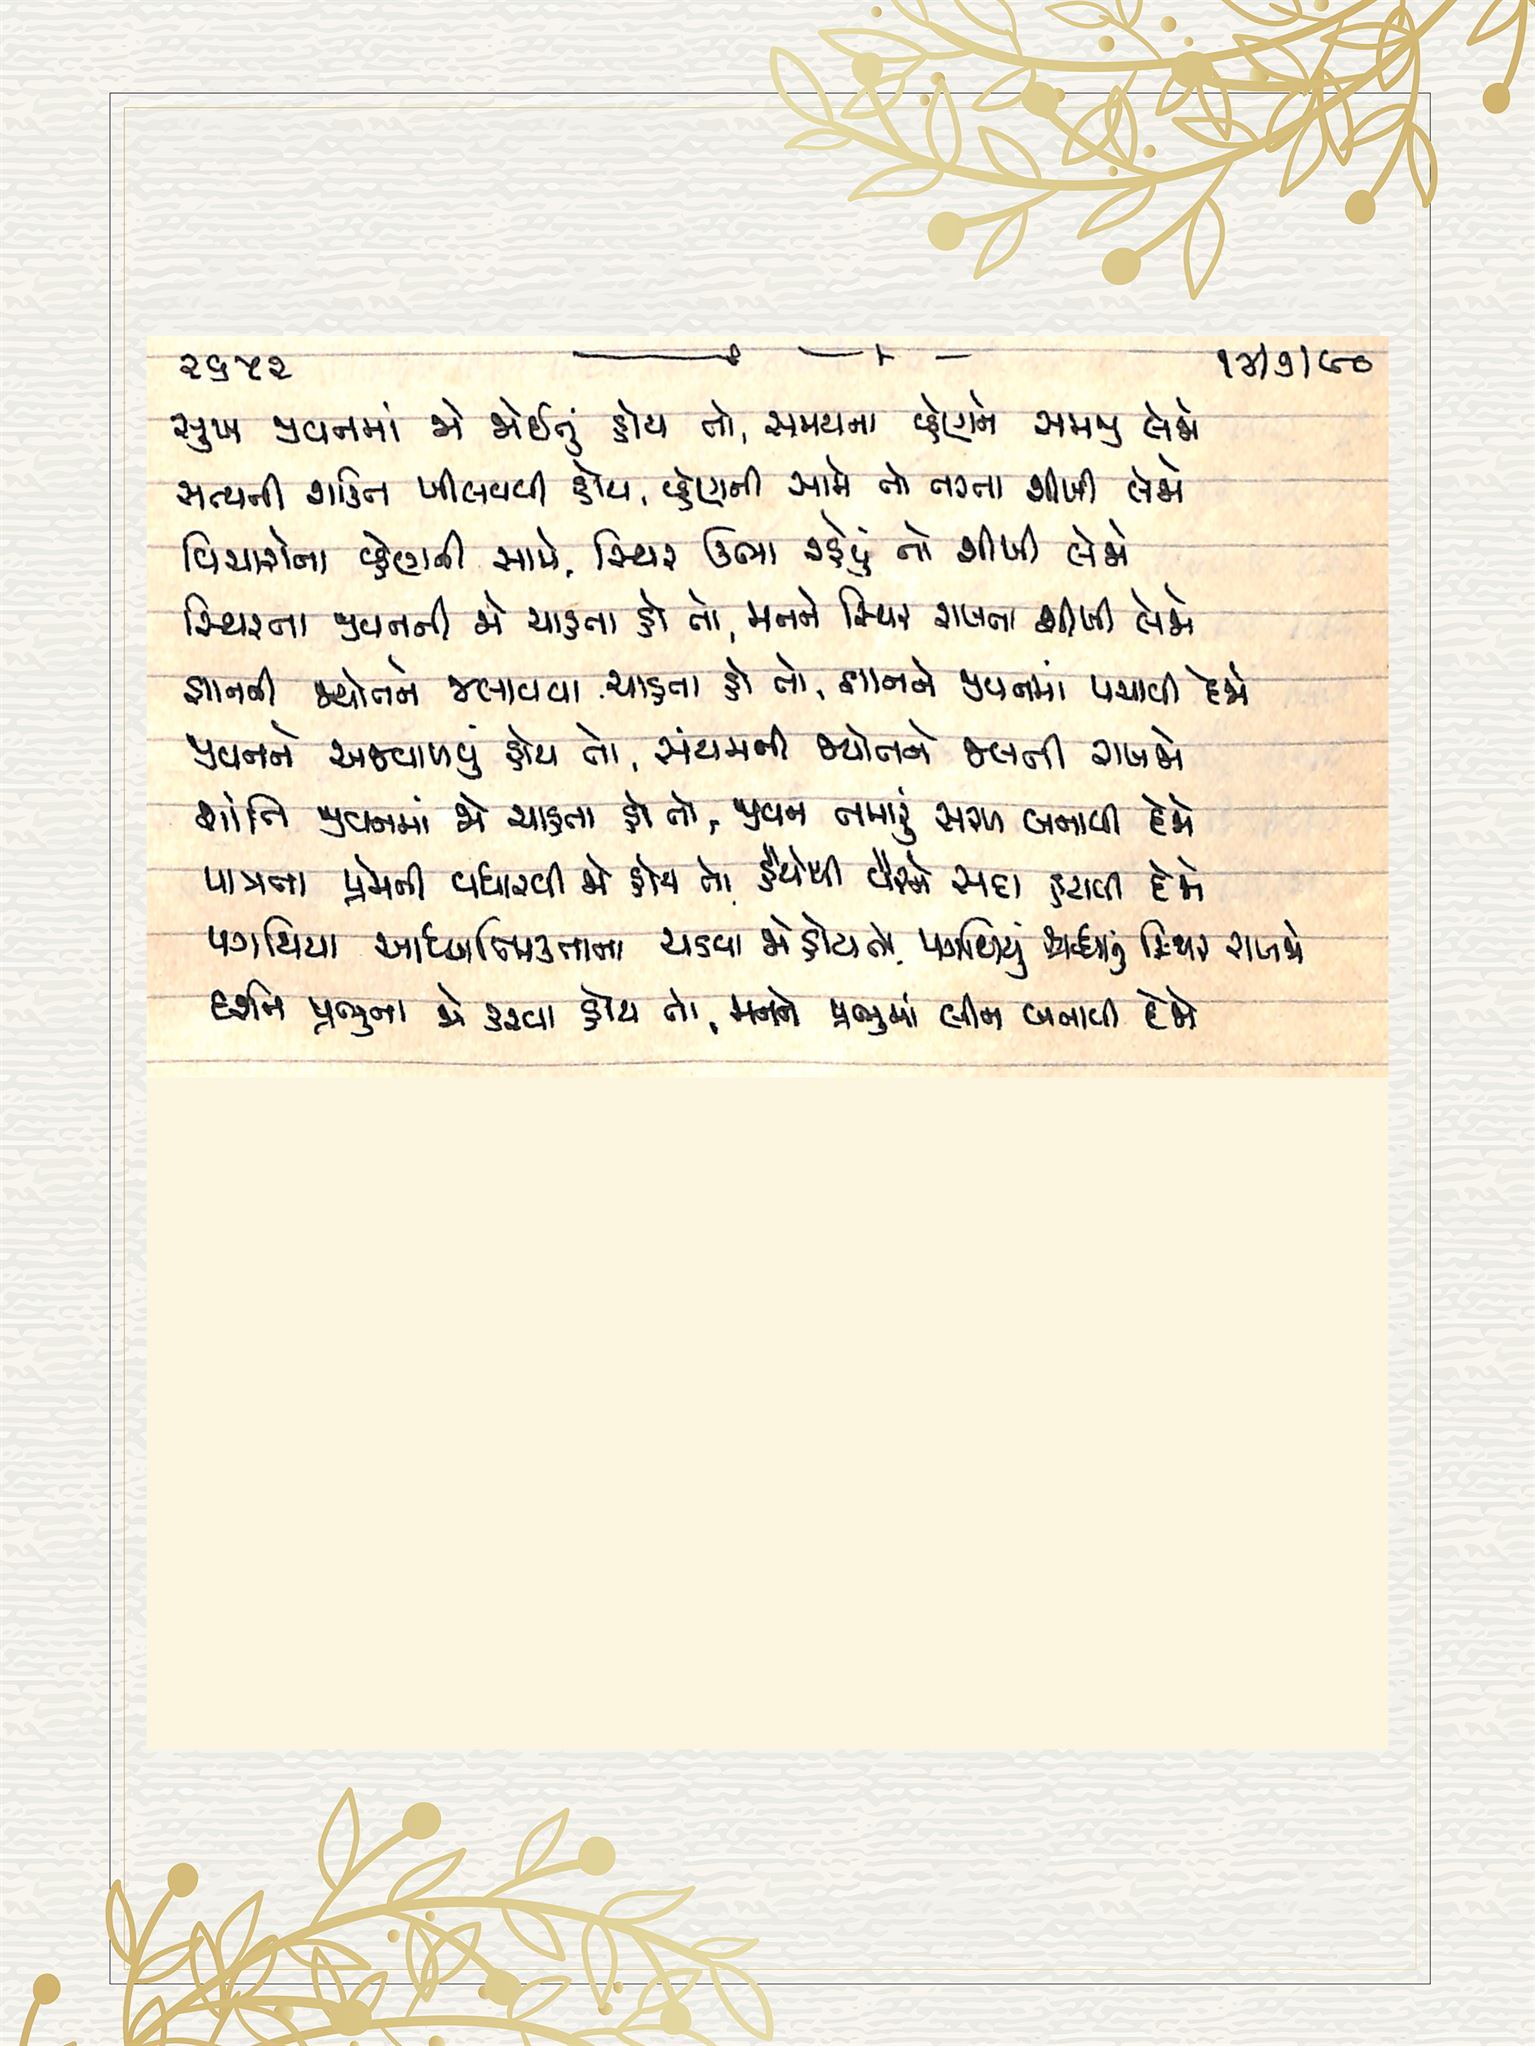 ૨૬૫૨ ૧૪/૭/૯૦
સુખ જીવનમાં જો જોઈતું હોય તો, સમયના વ્હેણને સમજી લેજો
સત્યની શક્તિ ખીલવવી હોય, વ્હેણની સામે તો તરતા શીખી લેજો
વિચારોના વ્હેણની સામે, સ્થિર ઉભા રહેવું તો શીખી લેજો
સ્થિરતા જીવનની જો ચાહતા હો તો, મનને સ્થિર રાખતા શીખી લેજો
જ્ઞાનની જ્યોતને જલાવવા ચાહતા હો તો, જ્ઞાનને જીવનમાં પચાવી દેજો
જીવનને અજવાળવું હોય તો, સંયમની જ્યોતને જલતી રાખજો
શાંતિ જીવનમાં જો ચાહતા હો તો, જીવન તમારું સરળ બનાવી દેજો
પાત્રતા પ્રેમની વધારવી જો હોય તો, હૈયેથી વૈરને સદા હટાવી દેજો
પગથિયા આધ્યાત્મિકતાના ચડવા જો હોય તો, પગથિયું શ્રદ્ધાનું સ્થિર રાખજો
દર્શન પ્રભુના જો કરવા હોય તો, મનને પ્રભુમાં લીન બનાવી દેજો